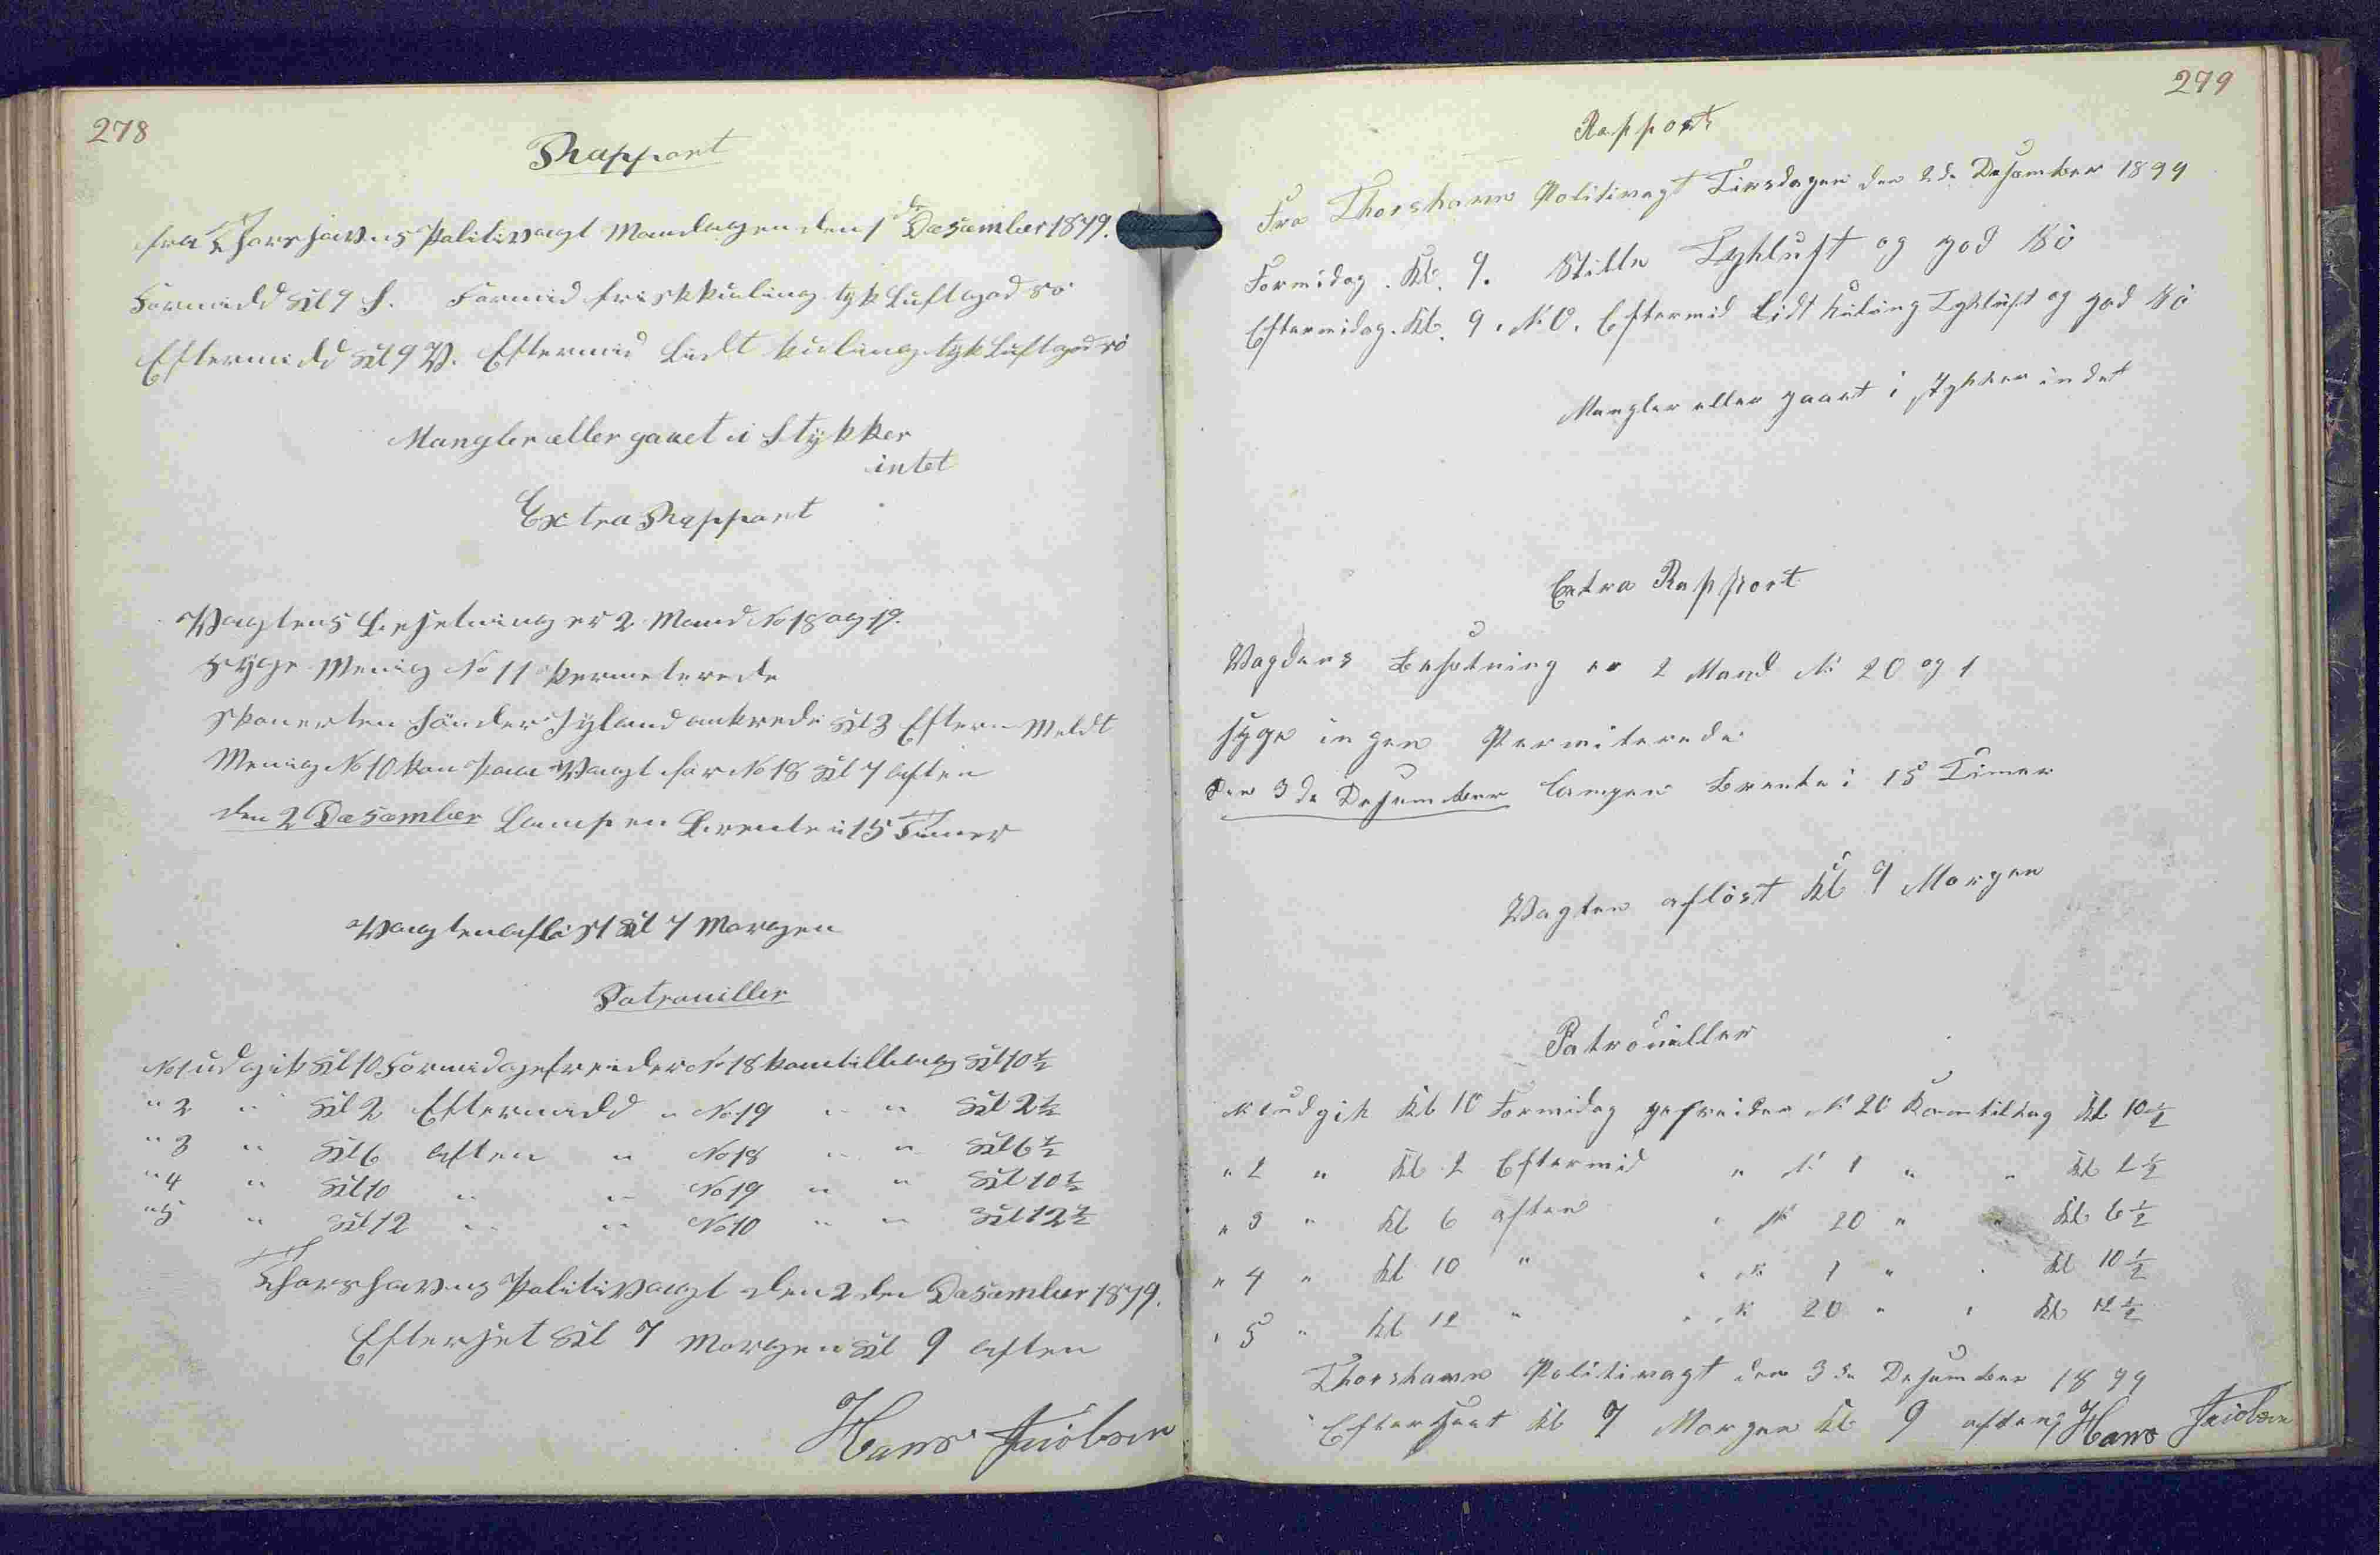 278
Rapport
fra Thorshavns Politivagt Mandagen den 1de Desember 1879.
Formidd Kl 9 S. Formid frisk kuling tyk Luft god sö
Eftermidd Kl 9 V. Eftermid Lidt kuling tyk Luft god sö
Mangler eller gaaet i Stykker
intet
Extra Rapport
Vagtens Besetning er 2 Mand No 18 og 19.
syge Menig No 11 Permeterede
Skonerten Sönder Jyland ankrede Kl 3 Efterm Meldt
Menig No 10 kom paa Vagt for No 18 Kl 7 Aften
den 2 Desember Lampen Brente i 15 Timer
Vagten aflöst Kl 7 Morgen
Patrouiller
No 1 udgik Kl 10 Formid gefreider No 18 kom tilbag Kl 10 1/2
" 2 " Kl 2 Eftermidd " No 19 " " Kl 2 1/2
" 3 " Kl 6 Aften " No 18 " " Kl 6 1/2
" 4 " Kl 10 " " No 19 " " Kl 10 1/2
" 5 " Kl 12 " " No 10 " " Kl 12 1/2
Thorshavns Politivagt den 2 den Desember 1879.
Efterset Kl 7 Morgen Kl 9 Aften
Hans Jacobsen
279
Rapport
Fra Thorshavn Politivagt Tirsdagen den 2de Desember 1879
Formidag. Kl. 9. Stille Tykluft og god Sö
Eftermidag. Kl. 9. N.O. Eftermid Lidt Kuling Tykluft og god Sö
Mangler eller gaaet i stykker indet
Extra Rapport
Vagdens Besetning er 2 Mand N: 20 og 1
syge ingen Permiterede
Den 3de Desember Lampen Brente i 15 Timer
Vagten aflöst Kl 7 Morgen
Patrouiller
N: 1 udgik Kl 10 Formidag gefreider N: 20 Kom tilbag Kl 10 1/2
" 2 " Kl 2 Eftermid " N: 1 " " Kl 2 1/2
" 3 " Kl 6 aften " N: 20 " " Kl 6 1/2
" 4 " Kl 10 " " N: 1 " " Kl 10 1/2
" 5 " Kl 12 " " N: 20 " " Kl 12 1/2
Thorshavn Politivagt den 3de Desember 1879
Efterseet Kl 7 Morgen Kl 9 aften Hans Jacobsen